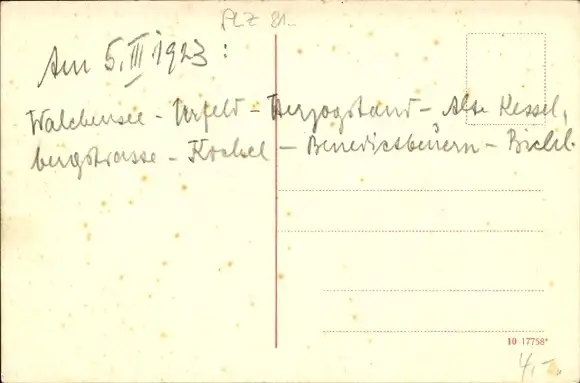 PLZ 81..
Am 5. III 1923 :
Walchensee - Urfeld - Herzogstand - Alte Kessel,
bergstrasse - Kochel - Benedictbeuern - Bichl.
10 17758*
4,-.